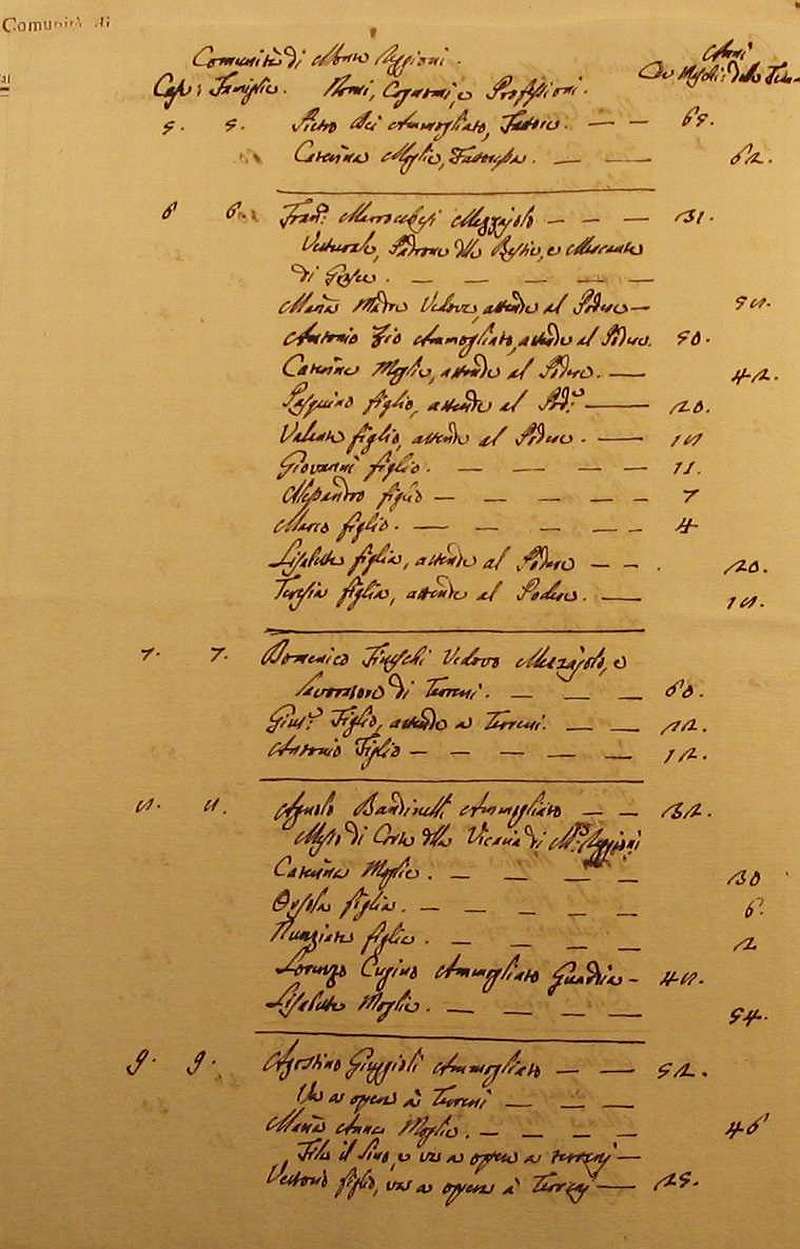 Comunità di
Comunità di Monte Reggioni.
Capi: Famiglie. Nomi, Cognomi, e Professioni.
Anni
De Maschi: delle Fem
5. 5. Pietro Ammogliato, Fattore. — — 65.
Caterina Moglie, Fattoressa. — — 62.
6 6. Fran.º Mezzajolo — — — 31.
Vetturale, Padrone delle Bestie, e Mercante
di — — — — —
Maria Madre Vedova, attende al Podere — 58.
Antonio Zio Ammogliato, attende al Podere. 50.
Caterina Moglie, attende al Podere. — 42.
Pasquino figlio, attende al Pod.e — 20.
Valente figlio, attende al Podere. — 18
Giovanni figlio. — — — — 11.
Alessandro figlio — — — — — 7
Marco figlio. — — — — — 4
Lisabetta figlia, attende al Podere — — . 20.
Teresia figlia, attende al Podere. — 18.
7. 7. Domenico Vedovo Mezzajolo, e
lavoratore di Terreni. — — — 60.
Gius.e Figlio, attende a Terreni. — — 22.
Antonio Figlio — — — — — 12.
8. 8. Agnolo Bandinelli Ammogliato — — 32.
Messo di Corte della Vicaria di M.e Reggioni
Caterina Moglie. — — — — 30
Orsola figlia. — — — — — 6.
Nunziata figlia. — — — — 2
Lorenzo Cugino Ammogliato Guardia — 48.
Lisabetta Moglie. — — — — 54.
9. 9. Agostino Giuggioli Ammogliato — — 52.
Va a opera a Terreni — — —
Maria Anna Moglie. — — — — 46
Fila il lino, e va a opera a terreni —
Vettorio figlio, va a opera a Terreni — 25.